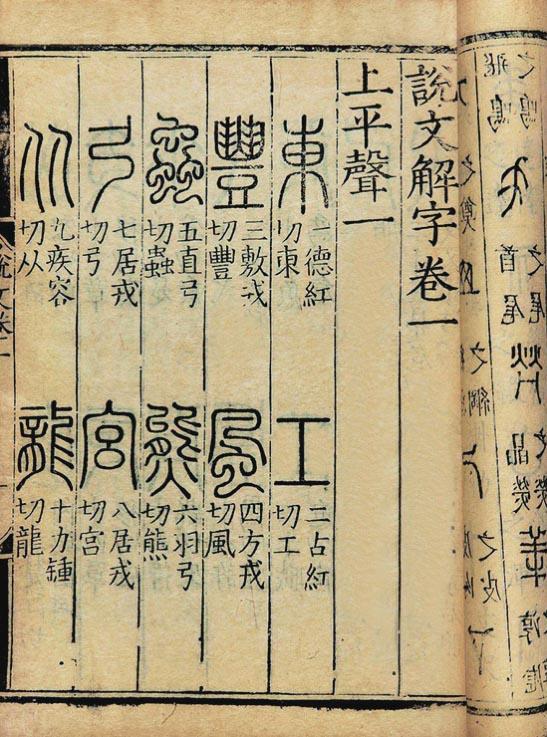 說文解字卷一
上平聲一
東
一德紅
切東
工
二占紅
切工
豐
三敷戎
切豐
風
四方戎
切風
蟲
五直弓
切蟲
熊
六羽弓
切熊
弓
七居戎
切弓
宮
八居戎
切宮
从
九疾容
切从
龍
十力鍾
切龍
說文卷一